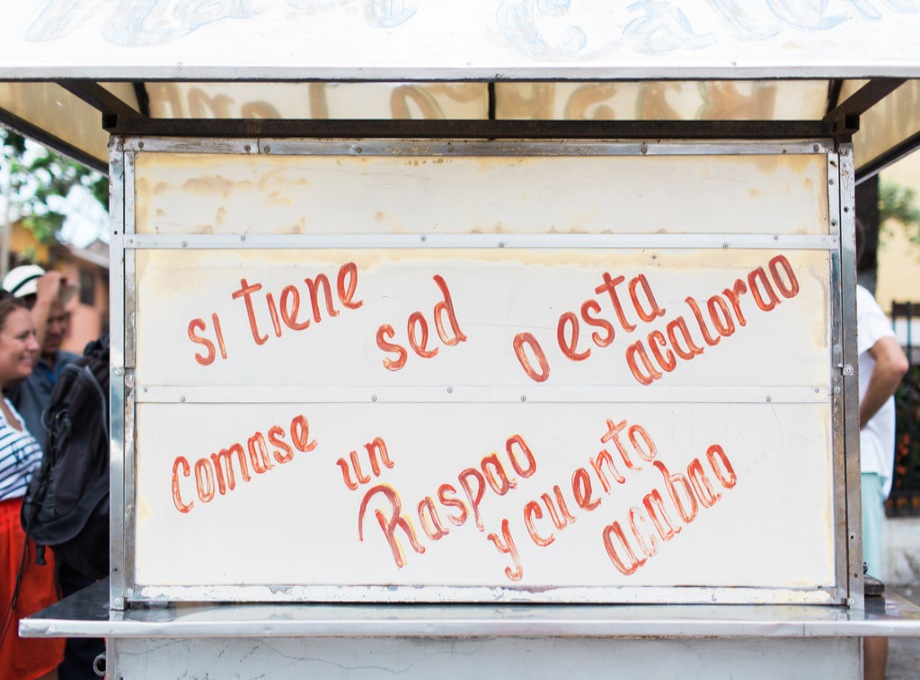 si tiene sed o esta
acalorao
Comase un Raspao
y cuento
acabao